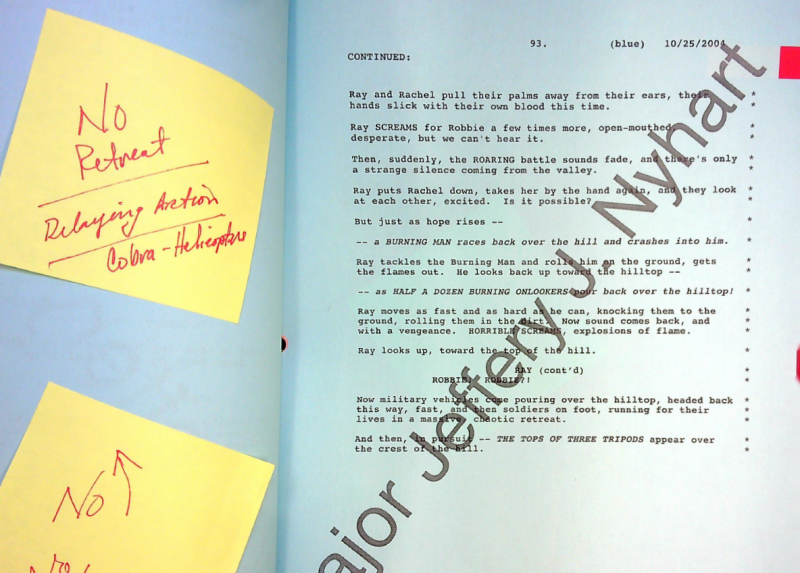 No
Retreat
Delaying Action
Cobra-Helicopters
No
93. (blue) 10/25/2004
CONTINUED:
Ray and Rachel pull their palms away from their ears, their *
hands slick with their own blood this time. *
Ray SCREAMS for Robbie a few times more, open-mouthed, *
desperate, but we can't hear it. *
Then, suddenly, the ROARING battle sounds fade, and there's only *
a strange silence coming from the valley. *
Ray puts Rachel down, takes her by the hand again, and they look *
at each other, excited. Is it possible? *
But just as hope rises -- *
-- a BURNING MAN races back over the hill and crashes into him. *
Ray tackles the Burning Man and rolls him on the ground, gets *
the flames out. He looks back up toward the hilltop -- *
-- as HALF A DOZEN BURNING ONLOOKERS pour back over the hilltop! *
Ray moves as fast and as hard as he can, knocking them to the *
ground, rolling them in the dirt. Now sound comes back, and *
with a vengeance. HORRIBLE SCREAMS, explosions of flame. *
Ray looks up, toward the top of the hill. *
RAY (cont'd) *
ROBBIE! ROBBIE?! *
Now military vehicles come pouring over the hilltop, headed back *
this way, fast, and then soldiers on foot, running for their *
lives in a massive, chaotic retreat. *
And then, in pursuit -- THE TOPS OF THREE TRIPODS appear over *
the crest of the hill. *
ajor Jeffery J. Nyhart